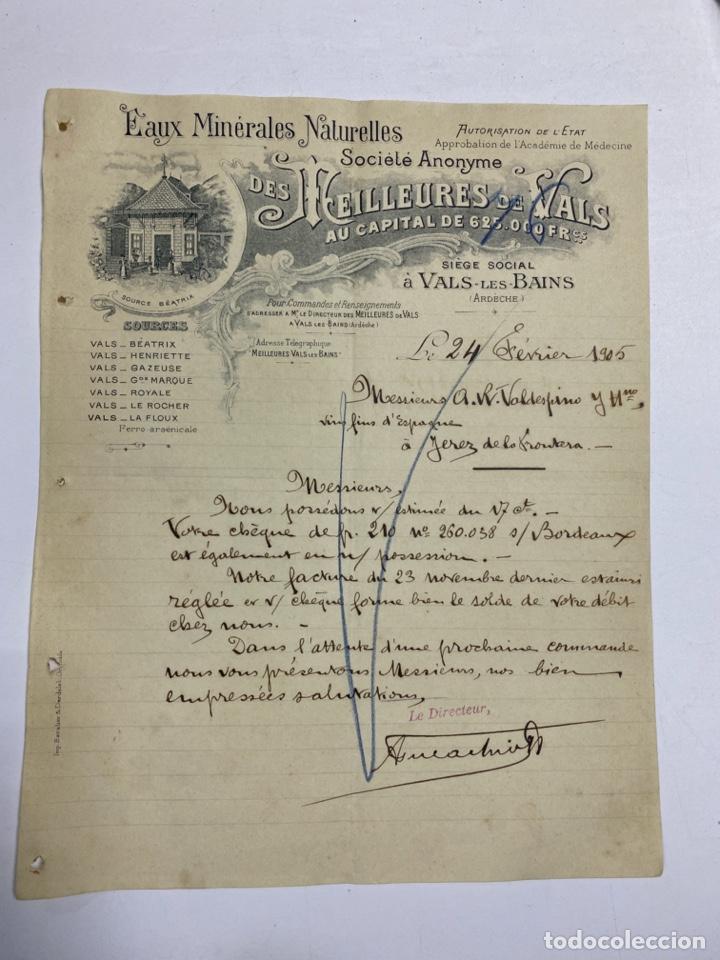 Eaux Minérales Naturelles
Autorisation de l'Etat
Approbation de l'Académie de Médecine
Société Anonyme
DES MEILLEURES DE VALS
AU CAPITAL DE 625.000 FRcs
SIÈGE SOCIAL
à VALS-LES-BAINS
(ARDÈCHE)
SOURCE BÉATRIX
SOURCES
VALS _ BÉATRIX
VALS _ HENRIETTE
VALS _ GAZEUSE
VALS _ GDE MARQUE
VALS _ ROYALE
VALS _ LE ROCHER
VALS _ LA FLOUX
Ferro-arsénicale
Pour Commandes et Renseignements
S'ADRESSER A Mr LE DIRECTEUR DES MEILLEURES DE VALS
A VALS LES BAINS (Ardèche)
Adresse Télégraphique
"MEILLEURES VALS LES BAINS"
Le 24 Février 1905
Messieurs A. R. Valdespino y Hno,
Vins fins d'Espagne
à Jerez de la Frontera. —
Messieurs,
Nous possédons v/ estimée du 17 ct. —
Votre chèque de fr. 210 No 260.038 s/ Bordeaux
est également en n/ possession. —
Notre facture du 23 novembre dernier est ainsi
réglée et v/ chèque forme bien le solde de votre débit
chez nous. —
Dans l'attente d'une prochaine commande
nous vous présentons, Messieurs, nos bien
empressées salutations,
Le Directeur,
todocoleccion
todocoleccion.net